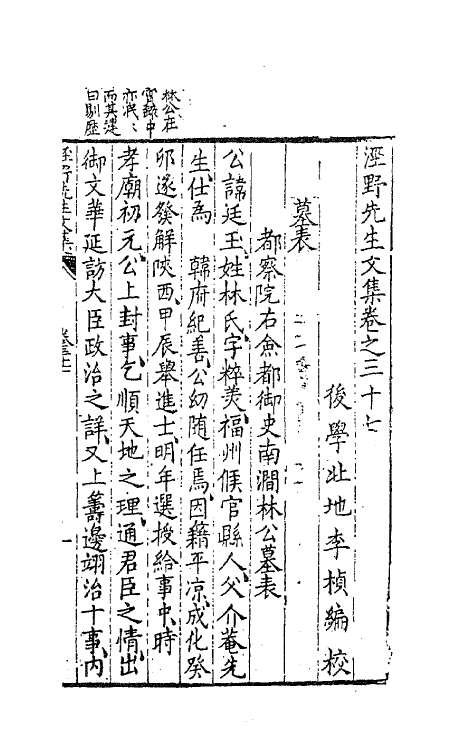 涇野先生文集卷之三十七
後學北地李楨編校
墓表
都察院右僉都御史南澗林公墓表
公諱廷玉姓林氏字粹美福州侯官縣人父介菴先
生仕爲 韓府紀善公幼随任焉因籍平凉成化癸
卯遂發解陝西甲辰舉進士明年選授給事中時
孝廟初元公上封事乞順天地之理通君臣之情出
御文華延訪大臣政治之詳又上籌邊翊治十事内
林公在
實録中
亦泯泯
而其建
白剴歷
涇野先生文集